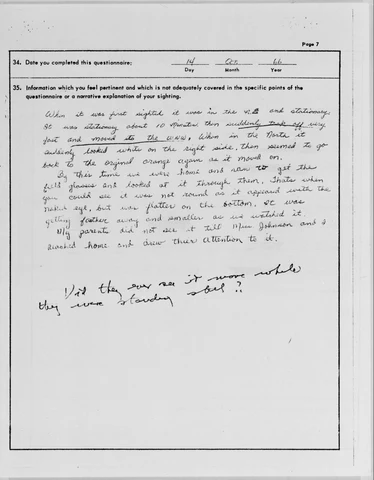 Page 7
34. Date you completed this questionnaire: 14 Oct 66
Day Month Year
35. Information which you feel pertinent and which is not adequately covered in the specific points of the
questionnaire or a narrative explanation of your sighting.
When it was first sighted it was in the and stationary.
It was stationary about 10 minutes then suddenly took off very
fast and moved to the W.N.W. When in the North it
suddenly looked white on the right side, then seemed to go
back to the original orange again as it moved on.
By this time we were home and able to get the
field glasses and looked at it through them. Thats when
you could see it was not round as it appeared with the
naked eye, but was flatter on the bottom. It was
getting farther away and smaller as we watched it.
My parents did not see it till Miss Johnson and I
reached home and drew their attention to it.
Did they ever see it move while
they were standing still?